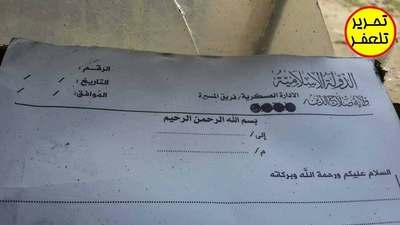 تحرير
تلعفر
الدولة الإسلامية
ولاية صلاح الدين /
الادارة العسكرية / فريق المسيرة
الرقم :
التاريخ : / /
الموافق : / /
بسم الله الرحمن الرحيم
إلى /
م /
السلام عليكم ورحمة الله وبركاته